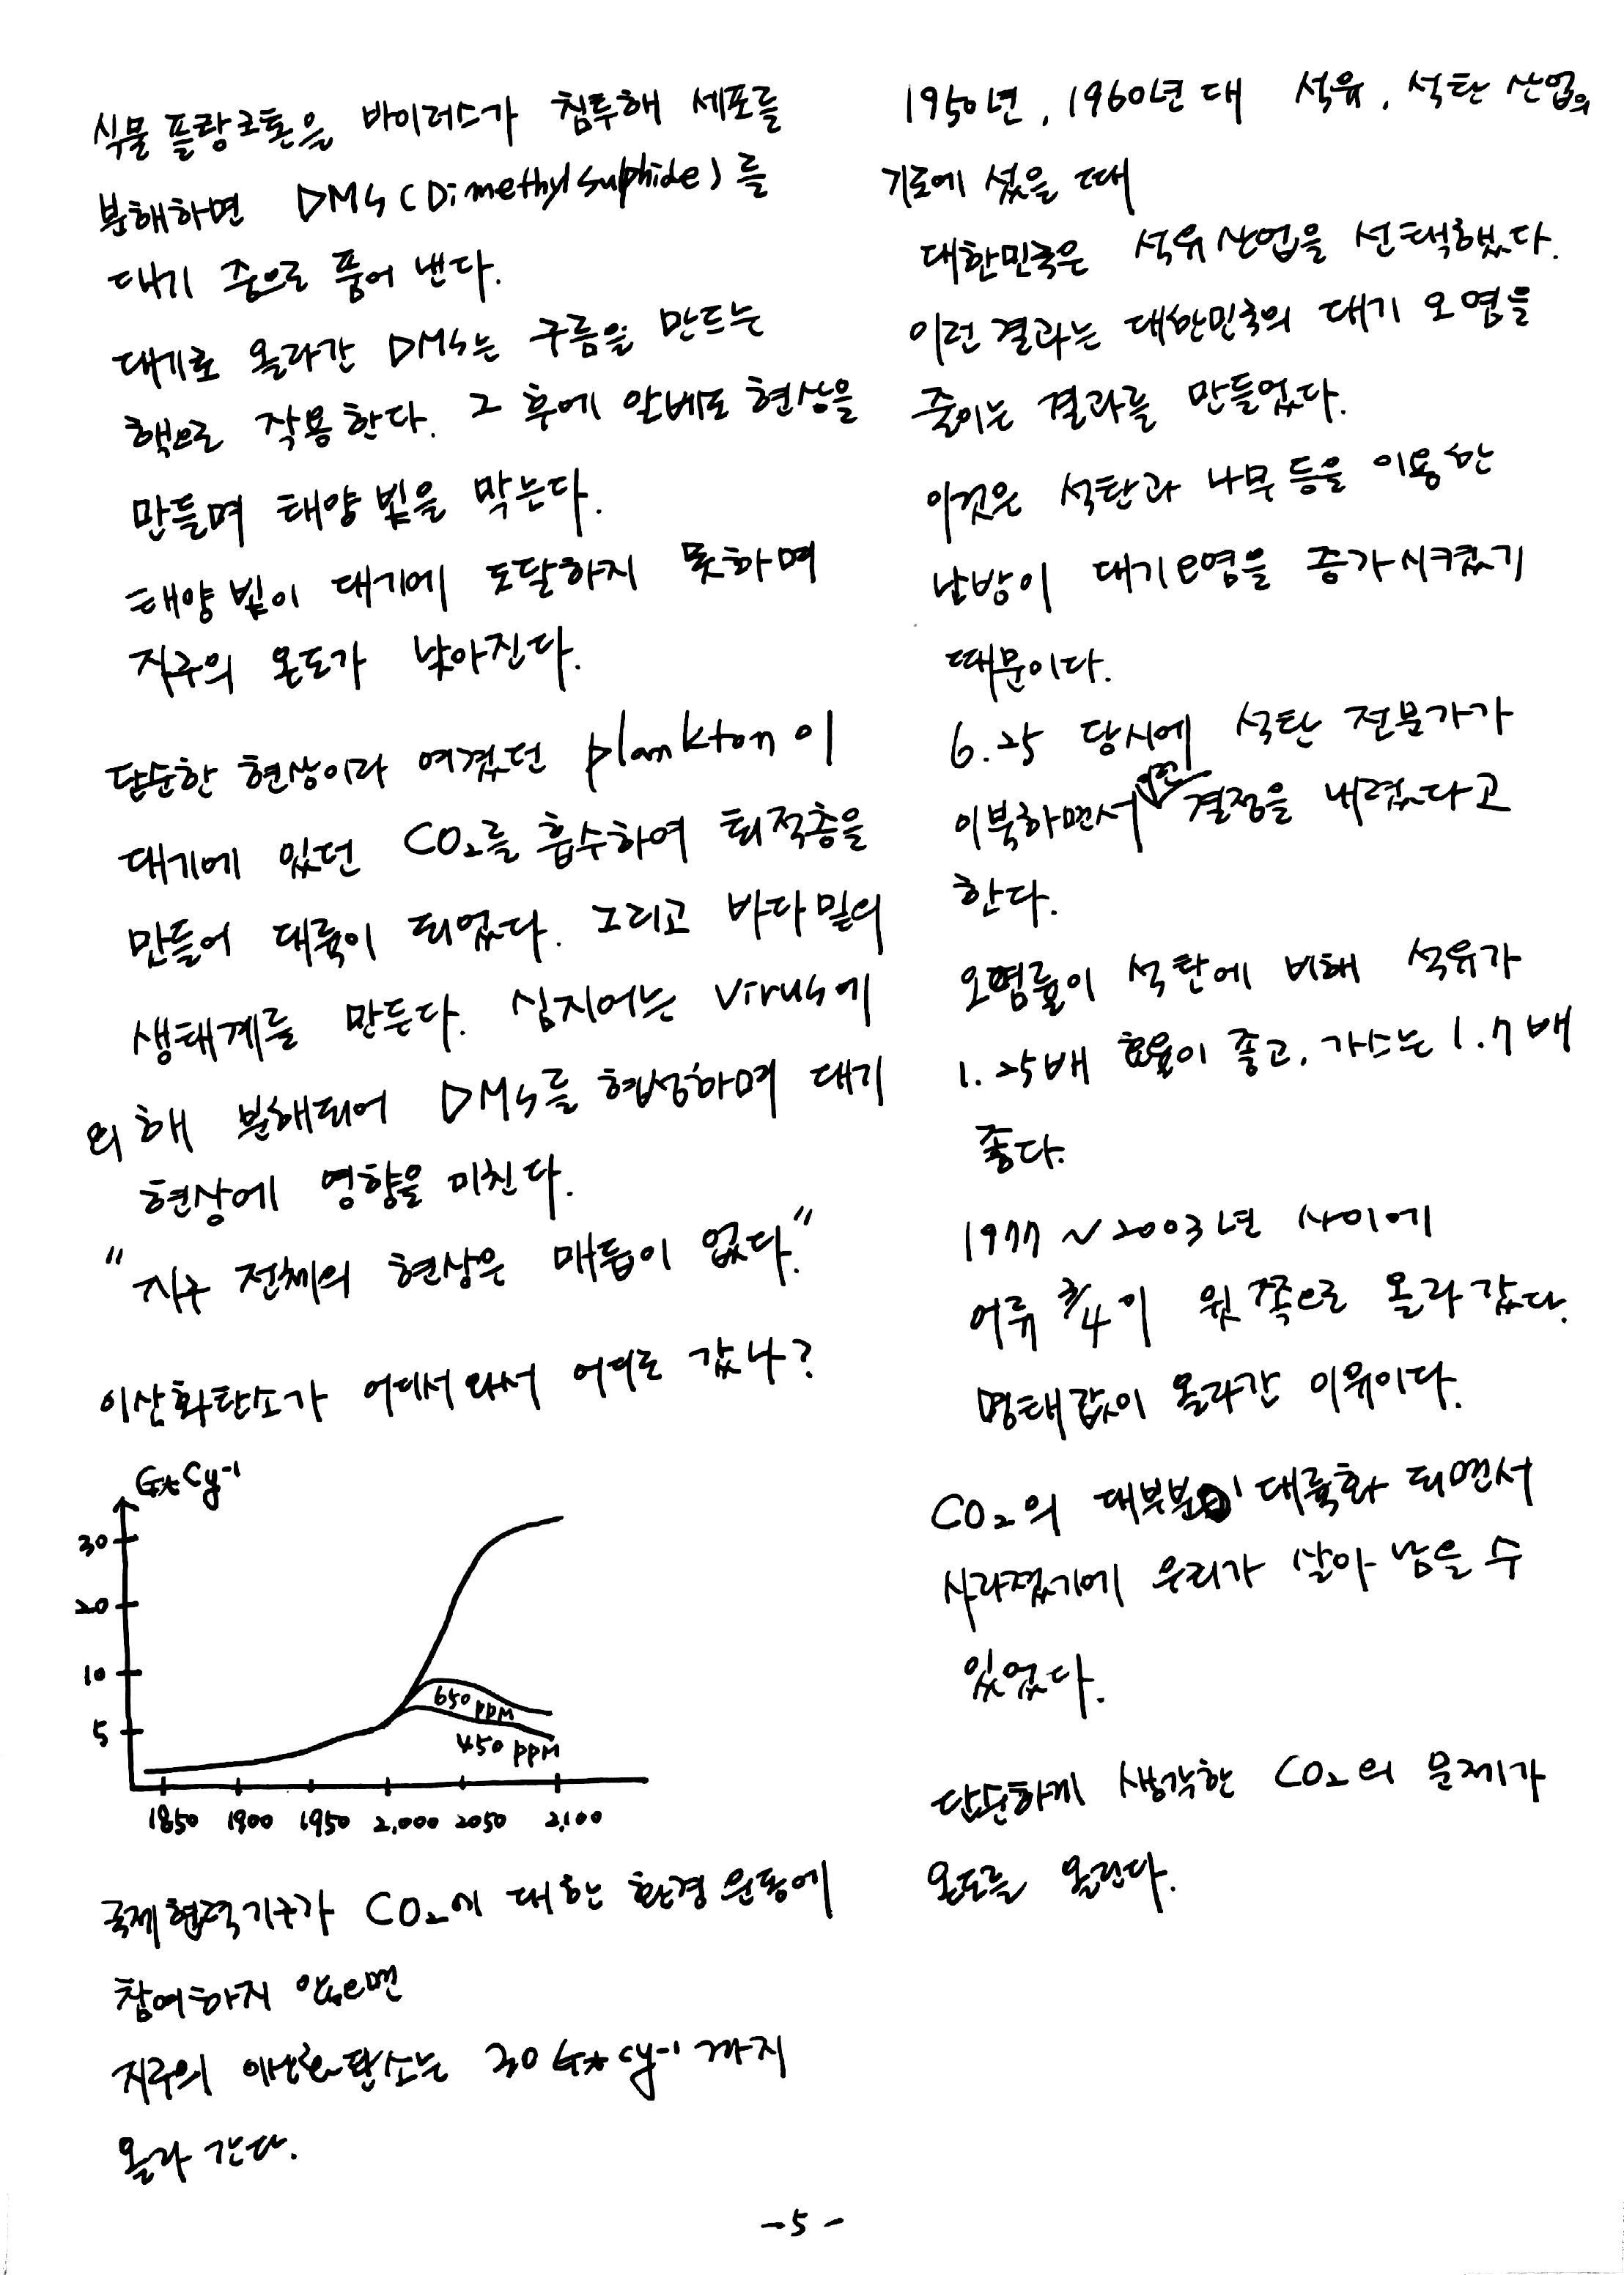 식물 플랑크톤은 바이러스가 침투해 세포를
분해하면 DMS (Dimethylsulphide)를
대기 중으로 품어 낸다.
대기로 올라간 DMS는 구름을 만드는
핵으로 작용한다. 그 후에 알베도 현상을
만들며 태양 빛을 막는다.
태양 빛이 대기에 도달하지 못하며
지구의 온도가 낮아진다.
단순한 현상이라 여겼던 plankton이
대기에 있던 CO₂를 흡수하여 퇴적층을
만들어 대륙이 되었다. 그리고 바다 밑의
생태계를 만든다. 심지어는 virus에
의해 분해되어 DMS를 형성하며 대기
현상에 영향을 미친다.
"지구 전체의 현상은 매듭이 없다."
이산화탄소가 어디서 와서 어디로 갔나?
Gt Cy⁻¹
30
20
10
5
650 PPM
450 PPM
1850 1900 1950 2,000 2050 2,100
국제협력기구가 CO₂에 대한 환경 운동에
참여하지 않으면
지구의 이산화탄소는 30 Gt Cy⁻¹ 까지
올라 간다.
1950년, 1960년대 석유, 석탄 산업의
기로에 섰을 때
대한민국은 석유산업을 선택했다.
이런 결과는 대한민국의 대기 오염을
줄이는 결과를 만들었다.
이것은 석탄과 나무 등을 이용한
난방이 대기오염을 증가시켰기
때문이다.
6.25 당시에 석탄 전문가가
이북하면서 이런 결정을 내렸다고
한다.
오염률이 석탄에 비해 석유가
1.25배 효율이 좋고, 가스는 1.7배
좋다.
1977 ~ 2003년 사이에
어류 3/4이 윗쪽으로 올라갔다.
명태값이 올라간 이유이다.
CO₂의 대부분이 대륙화 되면서
사라졌기에 우리가 살아 남을 수
있었다.
단순하게 생각한 CO₂의 문제가
온도를 올린다.
-5-